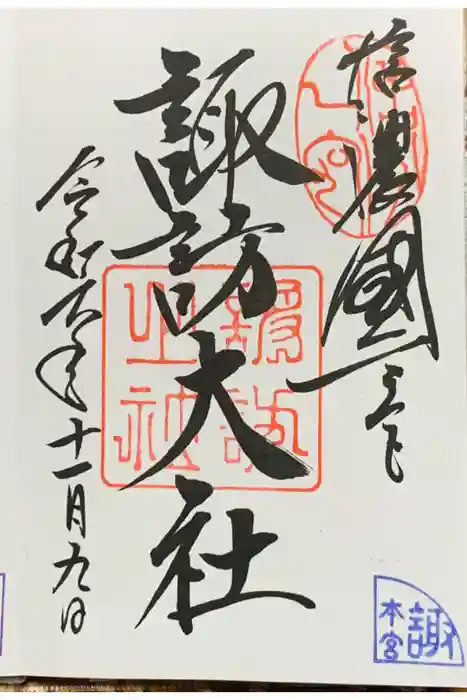 信濃國一之宮
諏訪大社
令和六年十一月九日
諏訪
神社
諏
本宮